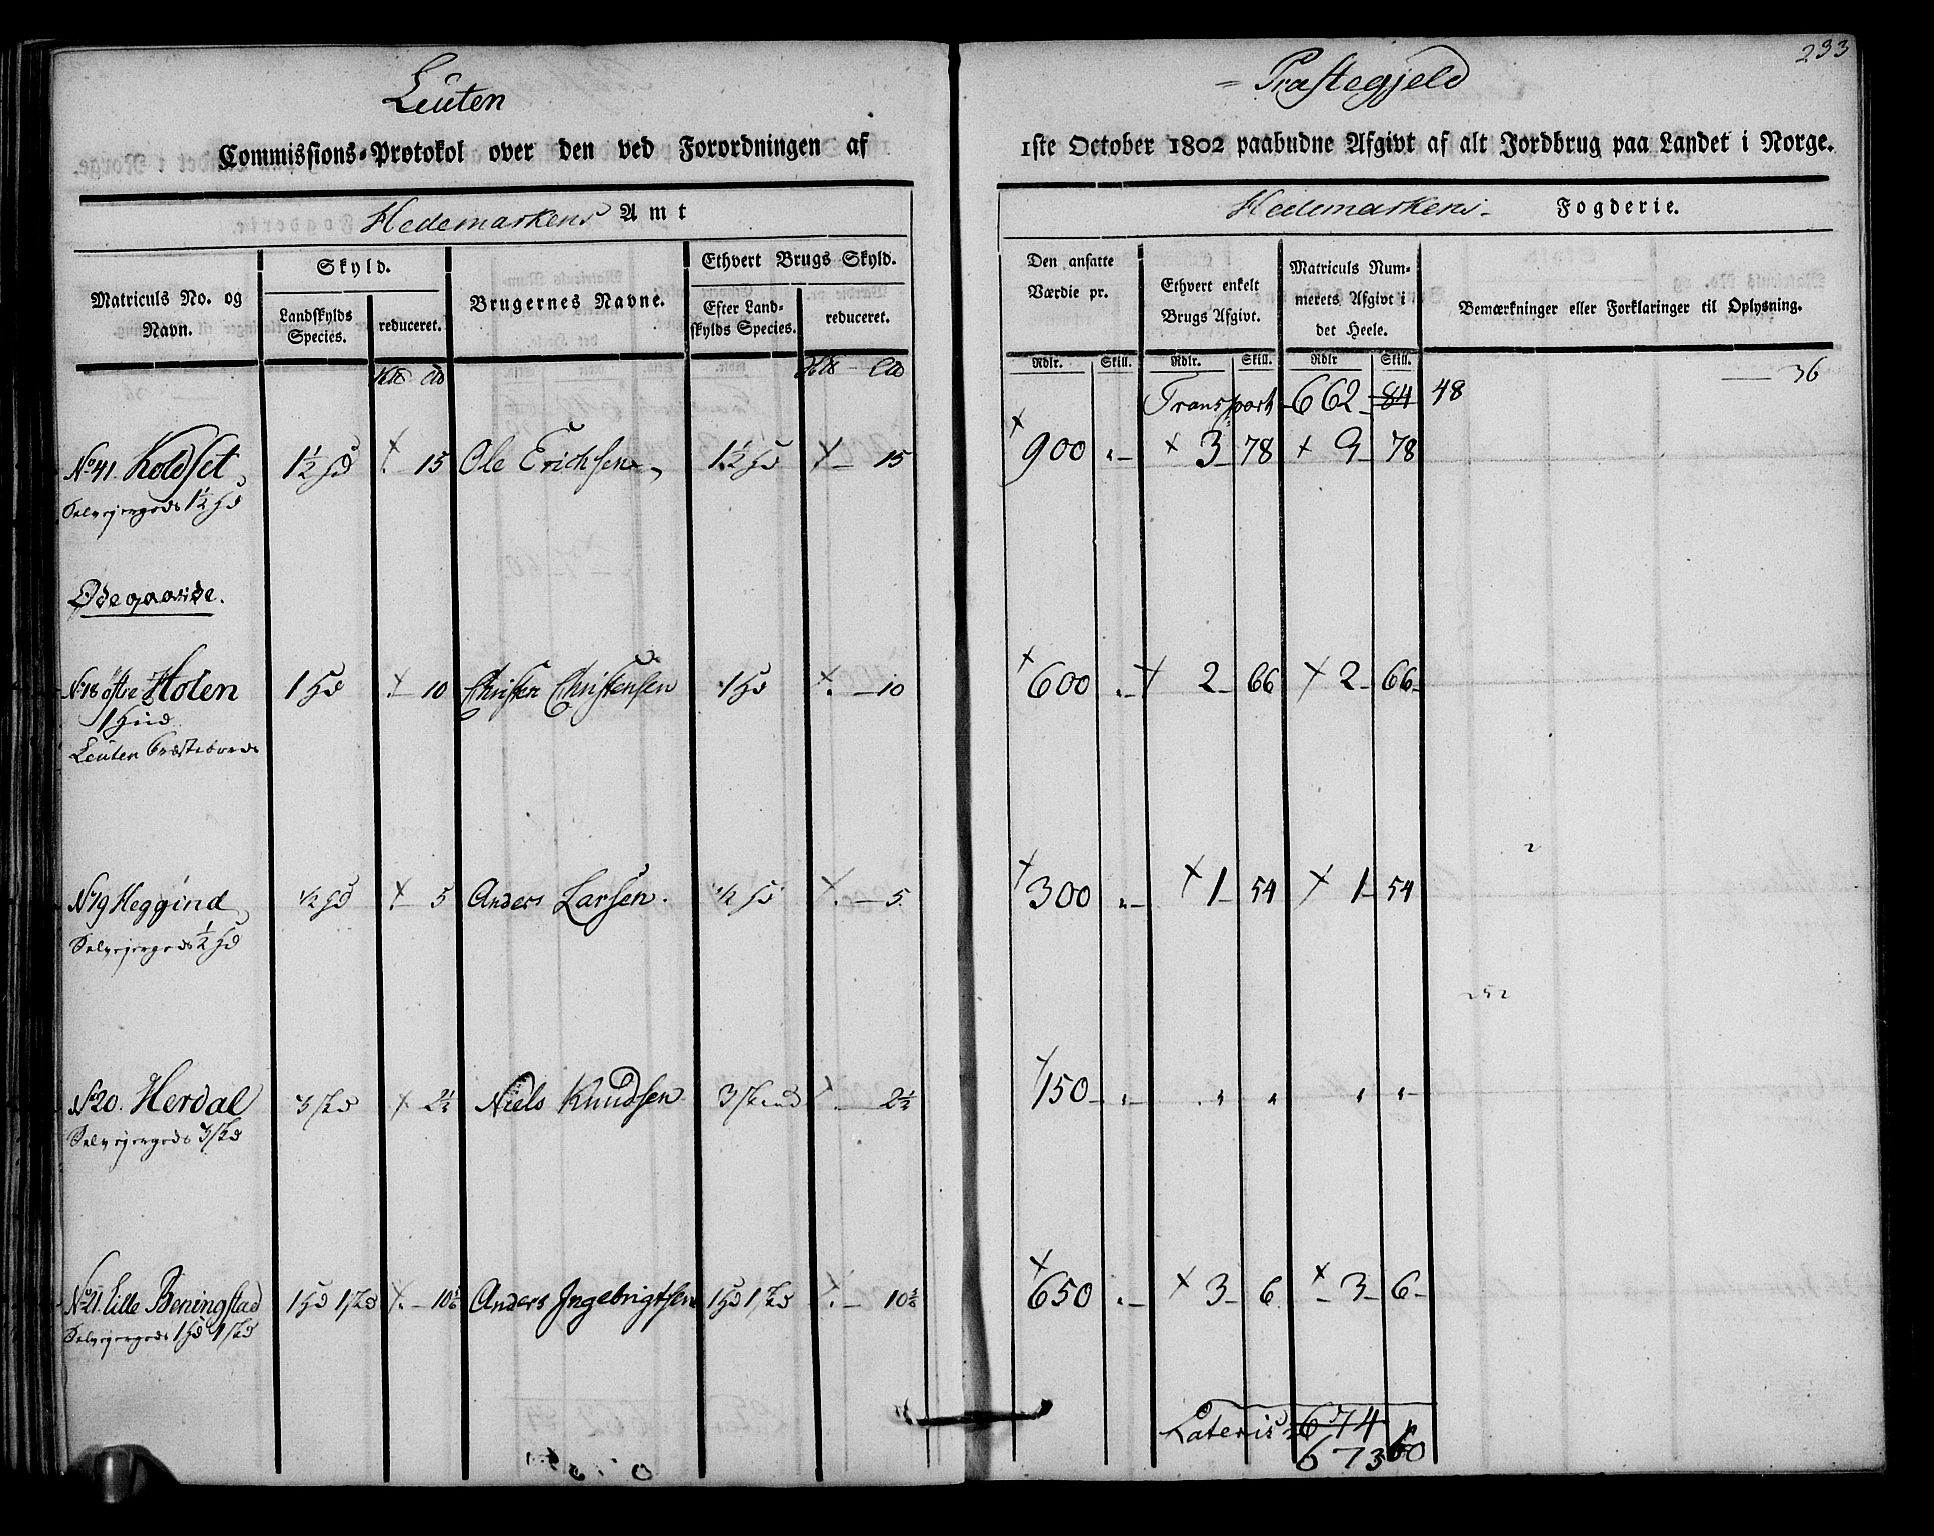 233
Leuten = Præstegjeld
Commissions-Protokol over den ved Forordningen af 1ste October 1802 paabudne Afgivt af alt Jordbrug paa Landet i Norge.
Hedemarkens Amt
Hedemarkens Fogderie.
Matriculs No. og Navn.
Skyld.
Landskylds Species.
reduceret.
Brugernes Navne.
Ethvert Brugs Skyld.
Efter Landskylds Species.
reduceret.
Den ansatte Værdie pr.
Ethvert enkelt Brugs Afgivt.
Matriculs Nummerets Afgivt i det Heele.
Bemærkninger eller Forklaringer til Oplysning.
Rdlr. Skill. Rdlr. Skill. Rdlr Skill.
Transport 662 84 48 36
No 41. Koldset 1½ Hd 15 Ole Erichsen 1½ Hd 15 900 3 78 9 78
Selvejergods 1½ Hd
Ødegaarde.
No 18 østre Holen 1 Hd 10 Christen Christensen 1 Hd 10 600 2 66 2 66
1 Hud
Leuten Præstebord
No 19 Heggind ½ Hd 5 Anders Larsen. ½ Hd 5 300 1 54 1 54
Selvejergods ½ Hd
252
No 20. Herdal 3 Skd 2½ Niels Knudsen 3 Skind 2½ 150 " " " "
Selvejergods 3 Skd
No 21. Lille Beningstad 1 Hd 1 Skd 10 Anders Ingebrigtsen 1 Hd 1 Skd 10 650 3 6 3 6
Selvejergods 1 Hd 1 Skd
Lateris 674
673 60